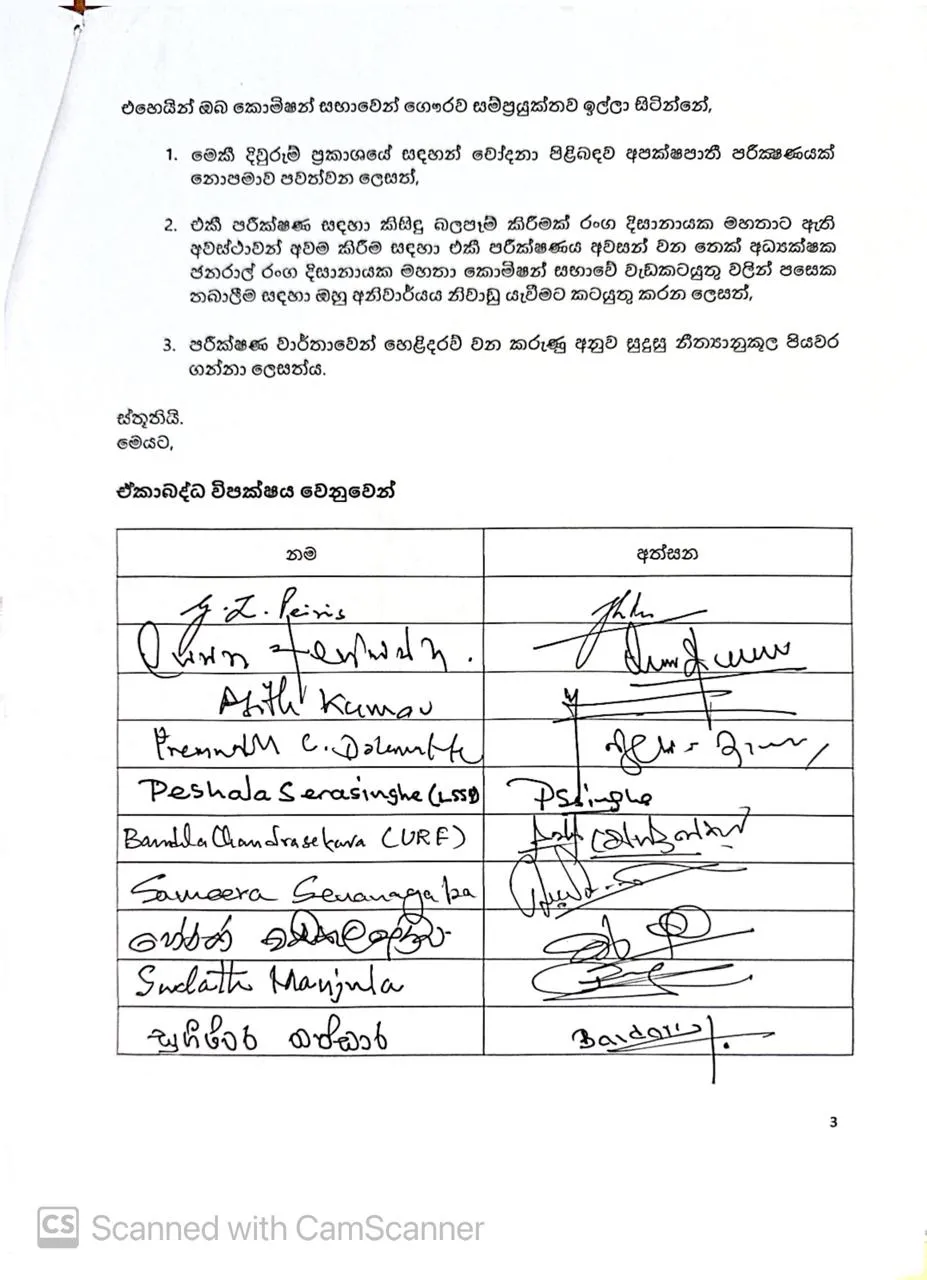 එහෙයින් ඔබ කොමිෂන් සභාවෙන් ගෞරව සම්ප්‍රයුක්තව ඉල්ලා සිටින්නේ,
1. මෙකී දිවුරුම් ප්‍රකාශයේ සඳහන් චෝදනා පිළිබඳව අපක්ෂපාතී පරීක්ෂණයක්
නොපමාව පවත්වන ලෙසත්,
2. එකී පරීක්ෂණ සඳහා කිසිදු බලපෑම් කිරීමක් රංග දිසානායක මහතාට ඇති
අවස්ථාවන් අවම කිරීම සඳහා එකී පරීක්ෂණය අවසන් වන තෙක් අධ්‍යක්ෂක
ජනරාල් රංග දිසානායක මහතා කොමිෂන් සභාවේ වැඩකටයුතු වලින් පසෙක
තබාලීම සඳහා ඔහු අනිවාර්යය නිවාඩු යැවීමට කටයුතු කරන ලෙසත්,
3. පරීක්ෂණ වාර්තාවෙන් හෙළිදරව් වන කරුණු අනුව සුදුසු නීත්‍යානුකූල පියවර
ගන්නා ලෙසත්ය.
ස්තූතියි.
මෙයට,
ඒකාබද්ධ විපක්ෂය වෙනුවෙන්
නම අත්සන
G. L. Peiris
Asith Kumar
C.
Peshala Serasinghe (LSSP) PSsinghe
Bandula Chandrasekara (URF)
Sameera Senanayaka
Sudath Manjula
සුගීෂ්වර බණ්ඩාර Bandara
3
CS Scanned with CamScanner